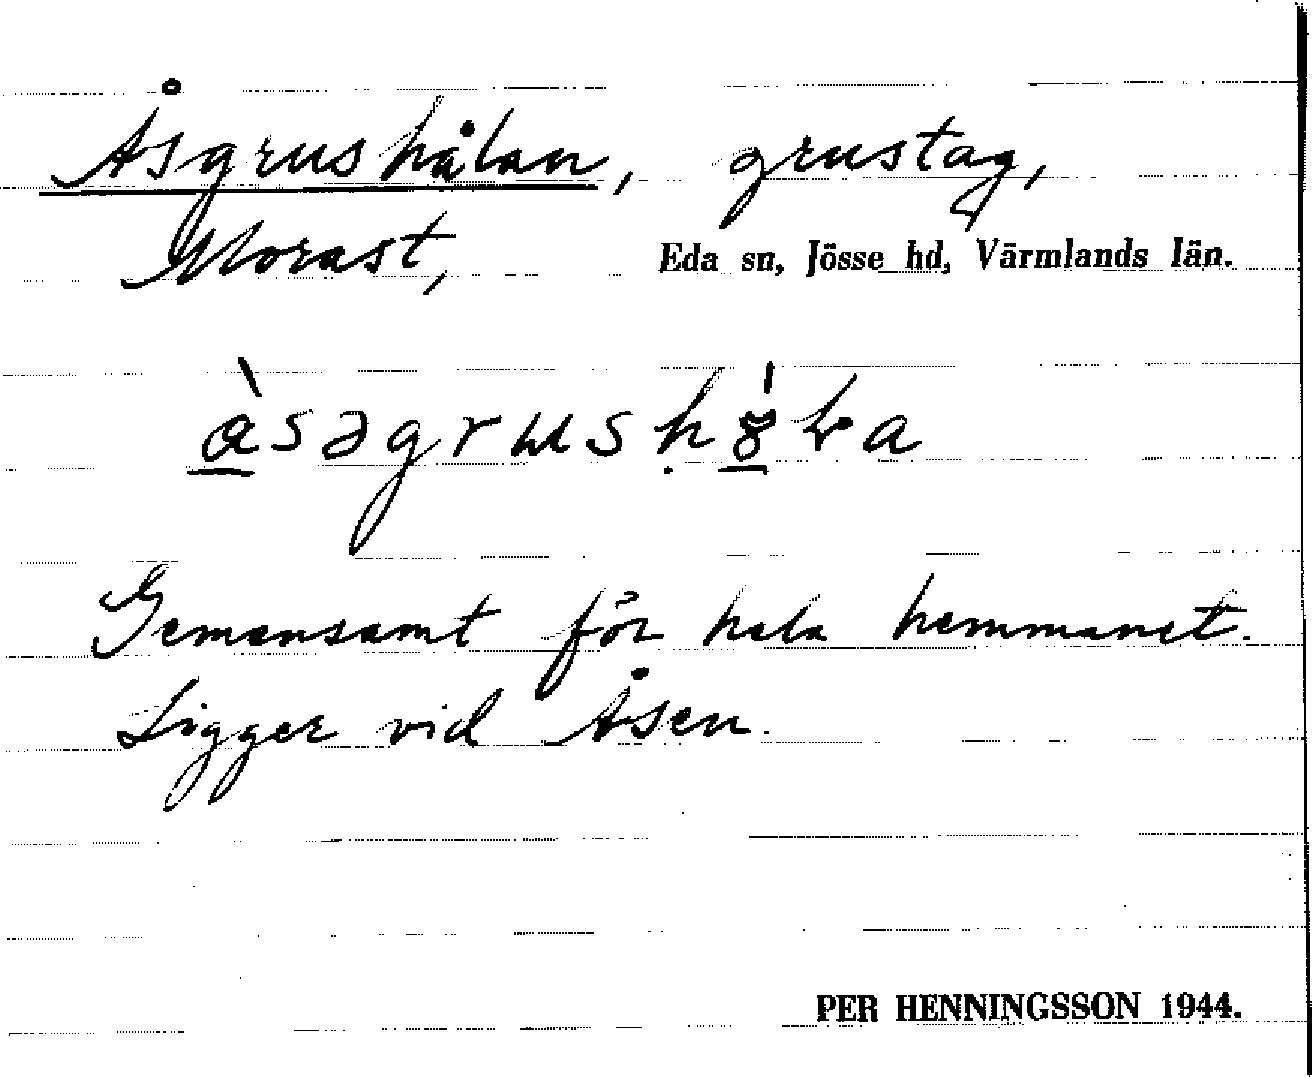 Åsgrushålan, grustag,
Morast, Eda sn, Jösse hd, Värmlands län.
Gemensamt för hela hemmanet.
Ligger vid Åsen.
PER HENNINGSSON 1944.